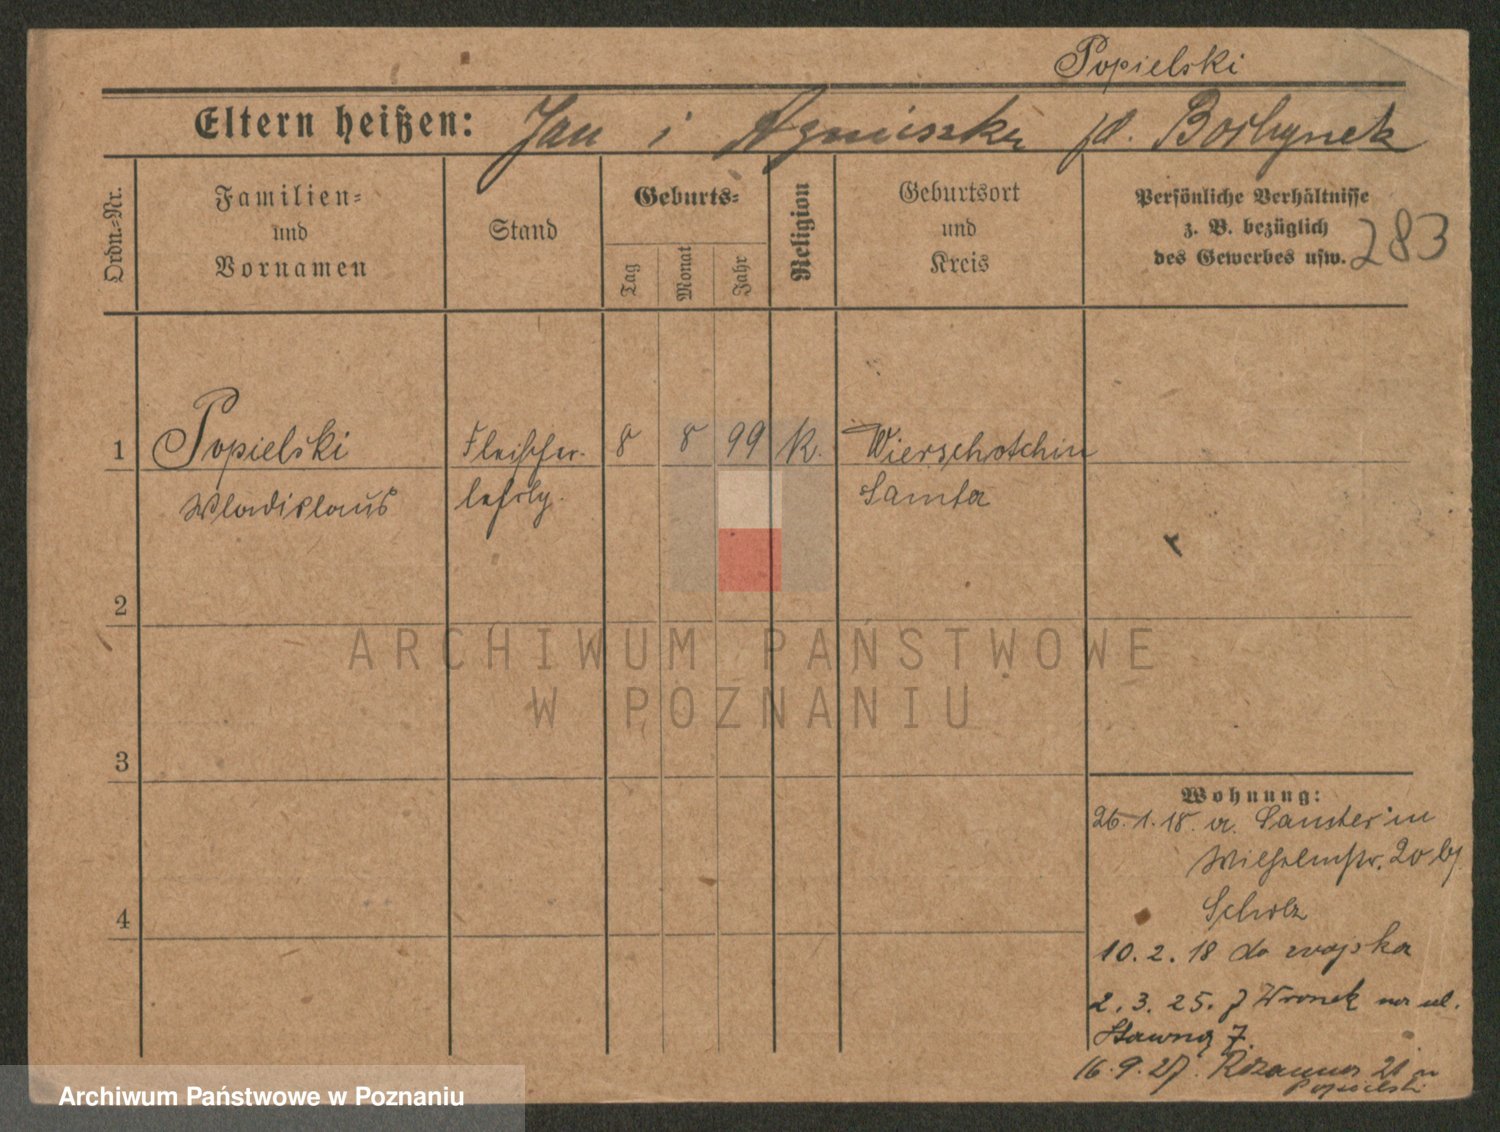 Popielski
Eltern heißen: Jan i Agnieszka
Ordn.-Nr.
Familien-
und
Vornamen
Stand
Geburts-
Tag
Monat
Jahr
Religion
Geburtsort
und
Kreis
Persönliche Verhältnisse
z. B. bezüglich
des Gewerbes usw.
283
1 Popielski Fleischer- 8 8 99 K. Wierschotchin
Wladislaus lehrlg. Samter
2
3
4
Wohnung:
26.1.18. v. Samter in
Wilhelmstr. 20 bj
Scholz
10.2.18 do wojska
2.3.25. z Wronek na ul.
Stawną 7.
16.9.27. Różanna 21
Popielski
ARCHIWUM PAŃSTWOWE
W POZNANIU
Archiwum Państwowe w Poznaniu